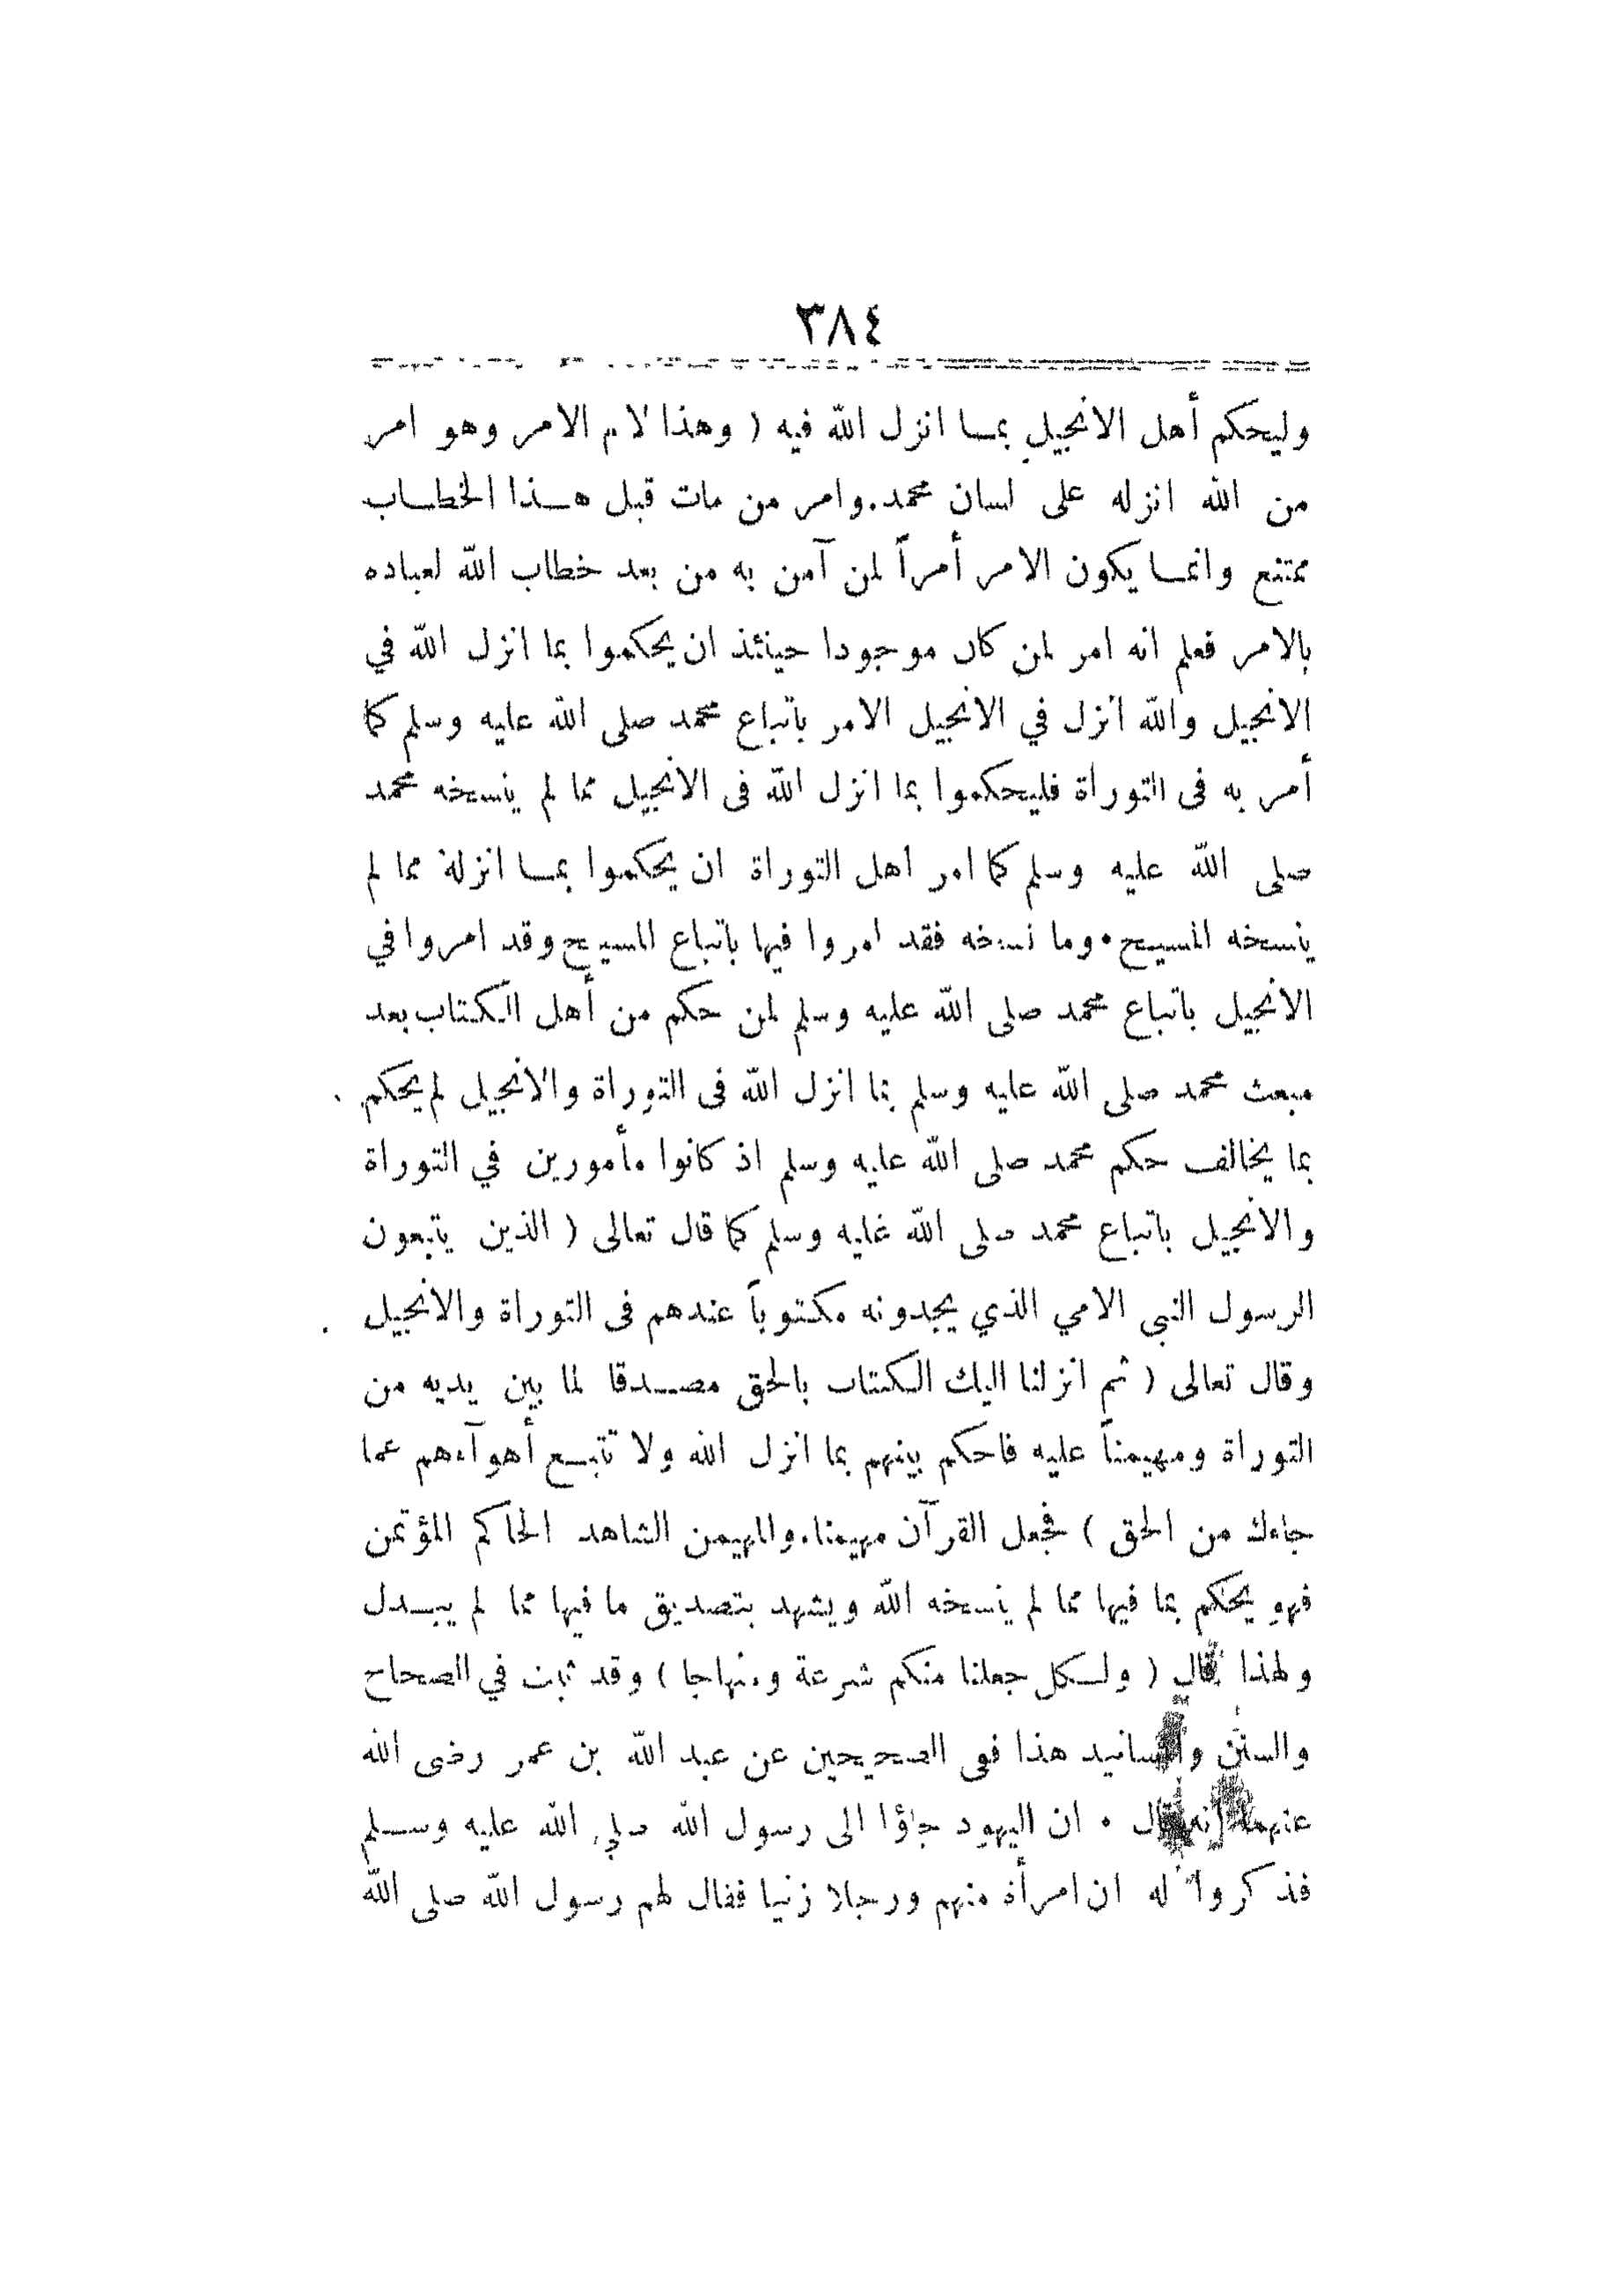 ٣٨٤
وليحكم أهل الانجيل بمـا انزل الله فيه ( وهذا لام الامر وهو امر
من الله انزله على لسان محمد. وامر من مات قبل هـذا الخطـاب
ممتنع وانمـا يكون الامر أمراً لمن آمن به من بعد خطاب الله لعباده
بالامر فعلم انه امر لمن كان موجودا حينئذ ان يحكموا بما انزل الله في
الانجيل والله انزل في الانجيل الامر باتباع محمد صلى الله عليه وسلم كما
أمر به فى التوراة فليحكموا بما انزل الله فى الانجيل مما لم ينسخه محمد
صلى الله عليه وسلم كما امر اهل التوراة ان يحكموا بمـا انزله مما لم
ينسخه المسيح • وما نسخه فقد امروا فيها باتباع المسيح وقد امروا في
الانجيل باتباع محمد صلى الله عليه وسلم لمن حكم من أهل الكتاب بعد
مبعث محمد صلى الله عليه وسلم بما انزل الله فى التوراة والانجيل لم يحكم
بما يخالف حكم محمد صلى الله عليه وسلم اذ كانوا مأمورين في التوراة
والانجيل باتباع محمد صلى الله عليه وسلم كما قال تعالى ( الذين يتبعون
الرسول النبي الامي الذي يجدونه مكتوباً عندهم فى التوراة والانجيل
وقال تعالى ( ثم انزلنا اليك الكتاب بالحق مصـدقا لما بين يديه من
التوراة ومهيمناً عليه فاحكم بينهم بما انزل الله ولا تتبـع أهوآءهم عما
جاءك من الحق ) فجعل القرآن مهيمنا. والمهيمن الشاهد الحاكم المؤتمن
فهو يحكم بما فيها مما لم ينسخه الله ويشهد بتصديق ما فيها مما لم يبـدل
ولهذا قال ( ولـكل جعلنا منكم شرعة ومنهاجا ) وقد ثبت في الصحاح
والسنن والمسانيد هذا فى الصحيحين عن عبد الله بن عمر رضى الله
عنهما انه قال • ان اليهود جاؤا الى رسول الله صلى الله عليه وسـلم
فذكروا له ان امرأة منهم ورجلا زنيا فقال لهم رسول الله صلى الله